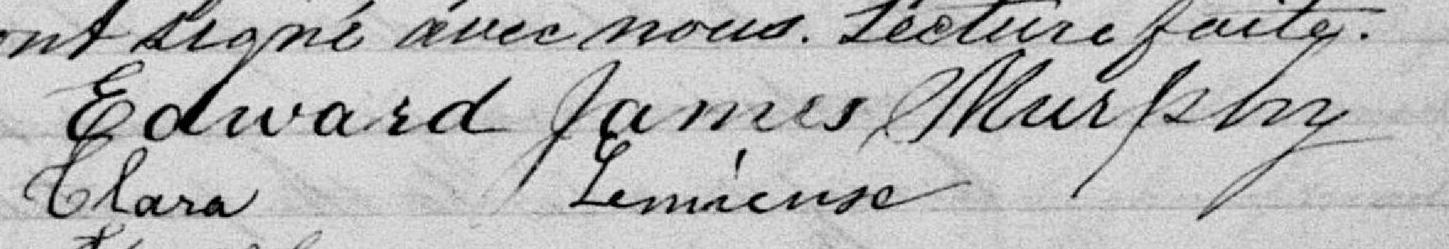 ont signé avec nous. Lecture faite.
Edward James Murphy
Clara Lemieuse